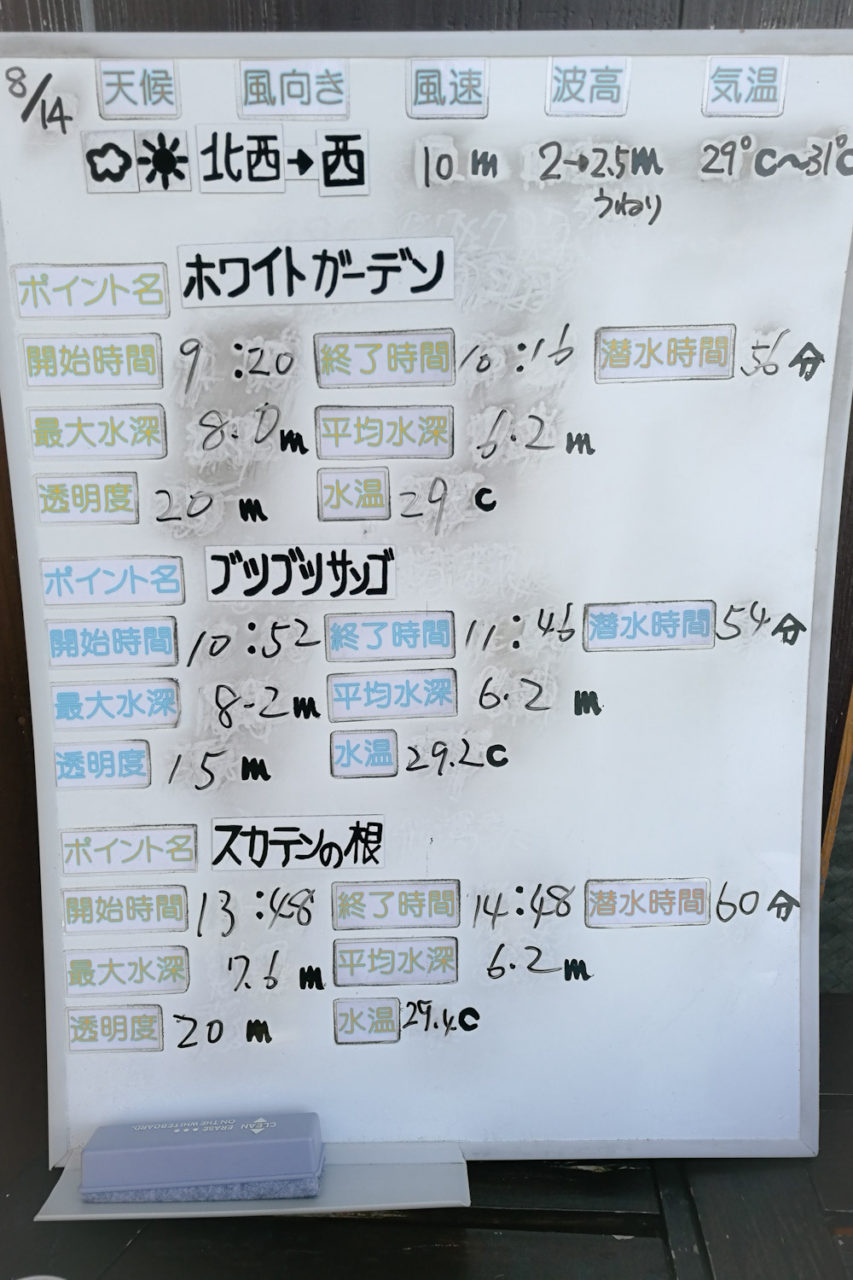 8/14 天候 風向き 風速 波高 気温
北西→西 10m 2→2.5m 29°C~31°C
うねり
ポイント名 ホワイトガーデン
開始時間 9:20 終了時間 10:16 潜水時間 56分
最大水深 8.0m 平均水深 6.2m
透明度 20m 水温 29c
ポイント名 ブツブツサンゴ
開始時間 10:52 終了時間 11:46 潜水時間 54分
最大水深 8.2m 平均水深 6.2m
透明度 15m 水温 29.2c
ポイント名 スカテンの根
開始時間 13:48 終了時間 14:48 潜水時間 60分
最大水深 7.6m 平均水深 6.2m
透明度 20m 水温 29.4c
CLEAN ERASE ON THE WHITEBOARD.